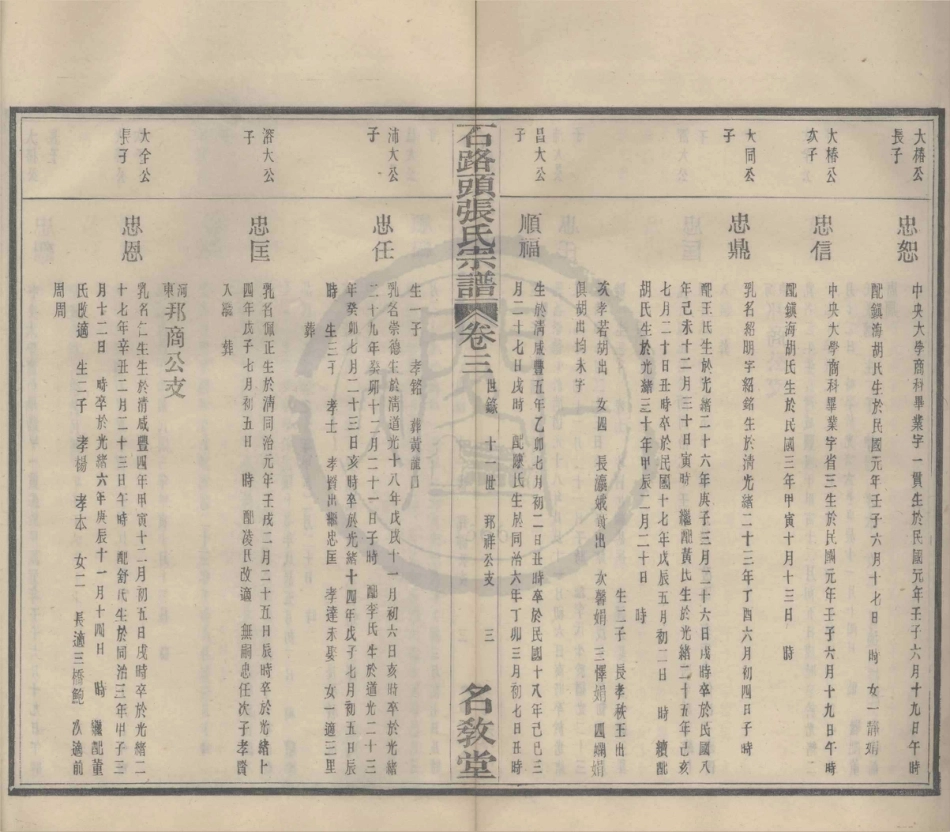 大椿公
長子
忠恕
中央大學商科畢業字一貫生於民國元年壬子六月十九日午時
配鎮海胡氏生於民國元年壬子六月十七日 時 女一 靜娟
大椿公
次子
忠信
中央大學商科畢業字省三生於民國元年壬子六月十九日午時
配鎮海胡氏生於民國三年甲寅十月十三日 時
大同公
子
忠鼎
乳名紹期字紹銘生於清光緒二十三年丁酉六月初四日子時
配王氏生於光緒二十六年庚子三月二十六日戌時卒於民國八
年己未十二月三十日寅時 繼配黃氏生於光緒二十五年己亥
七月二十日丑時卒於民國十七年戊辰五月初二日 時 續配
胡氏生於光緒三十年甲辰二月二十日 時
生二子 長孝秋王出
次孝若胡出 女四 長瀛娥黃出 次馨娟 三懌娟 四嫻娟
俱胡出均未字
昌大公
子
順福
生於清咸豐五年乙卯七月初二日丑時卒於民國十八年己巳三
月二十七日戌時 配陳氏生於同治六年丁卯三月初七日丑時
石路頭張氏宗譜 卷三 世錄 十一世 邦祥公支 三 名教堂
生一子 孝銘 葬黃龍
沛大公
子
忠任
乳名崇德生於清道光十八年戊戌十一月初六日亥時卒於光緒
二十九年癸卯十二月二十一日子時 配李氏生於道光二十三
年癸卯七月二十三日亥時卒於光緒十四年戊子七月初五日辰
時 生三子 孝士 孝賢出繼忠匡 孝達未娶 女一適三里
葬
濟大公
子
忠匡
乳名佩正生於清同治元年壬戌二月二十五日辰時卒於光緒十
四年戊子七月初五日 時 配凌氏改適 無嗣忠任次子孝賢
入繼 葬
河東 邦商公支
大全公
長子
忠恩
乳名仁生生於清咸豐四年甲寅十二月初五日戌時卒於光緒二
十七年辛丑二月二十三日午時 配舒氏生於同治三年甲子三
月十二日 時卒於光緒六年庚辰十一月十四日 時 繼配董
氏改適 生二子 孝揚 孝本 女二 長適三橋鮑 次適前
周周